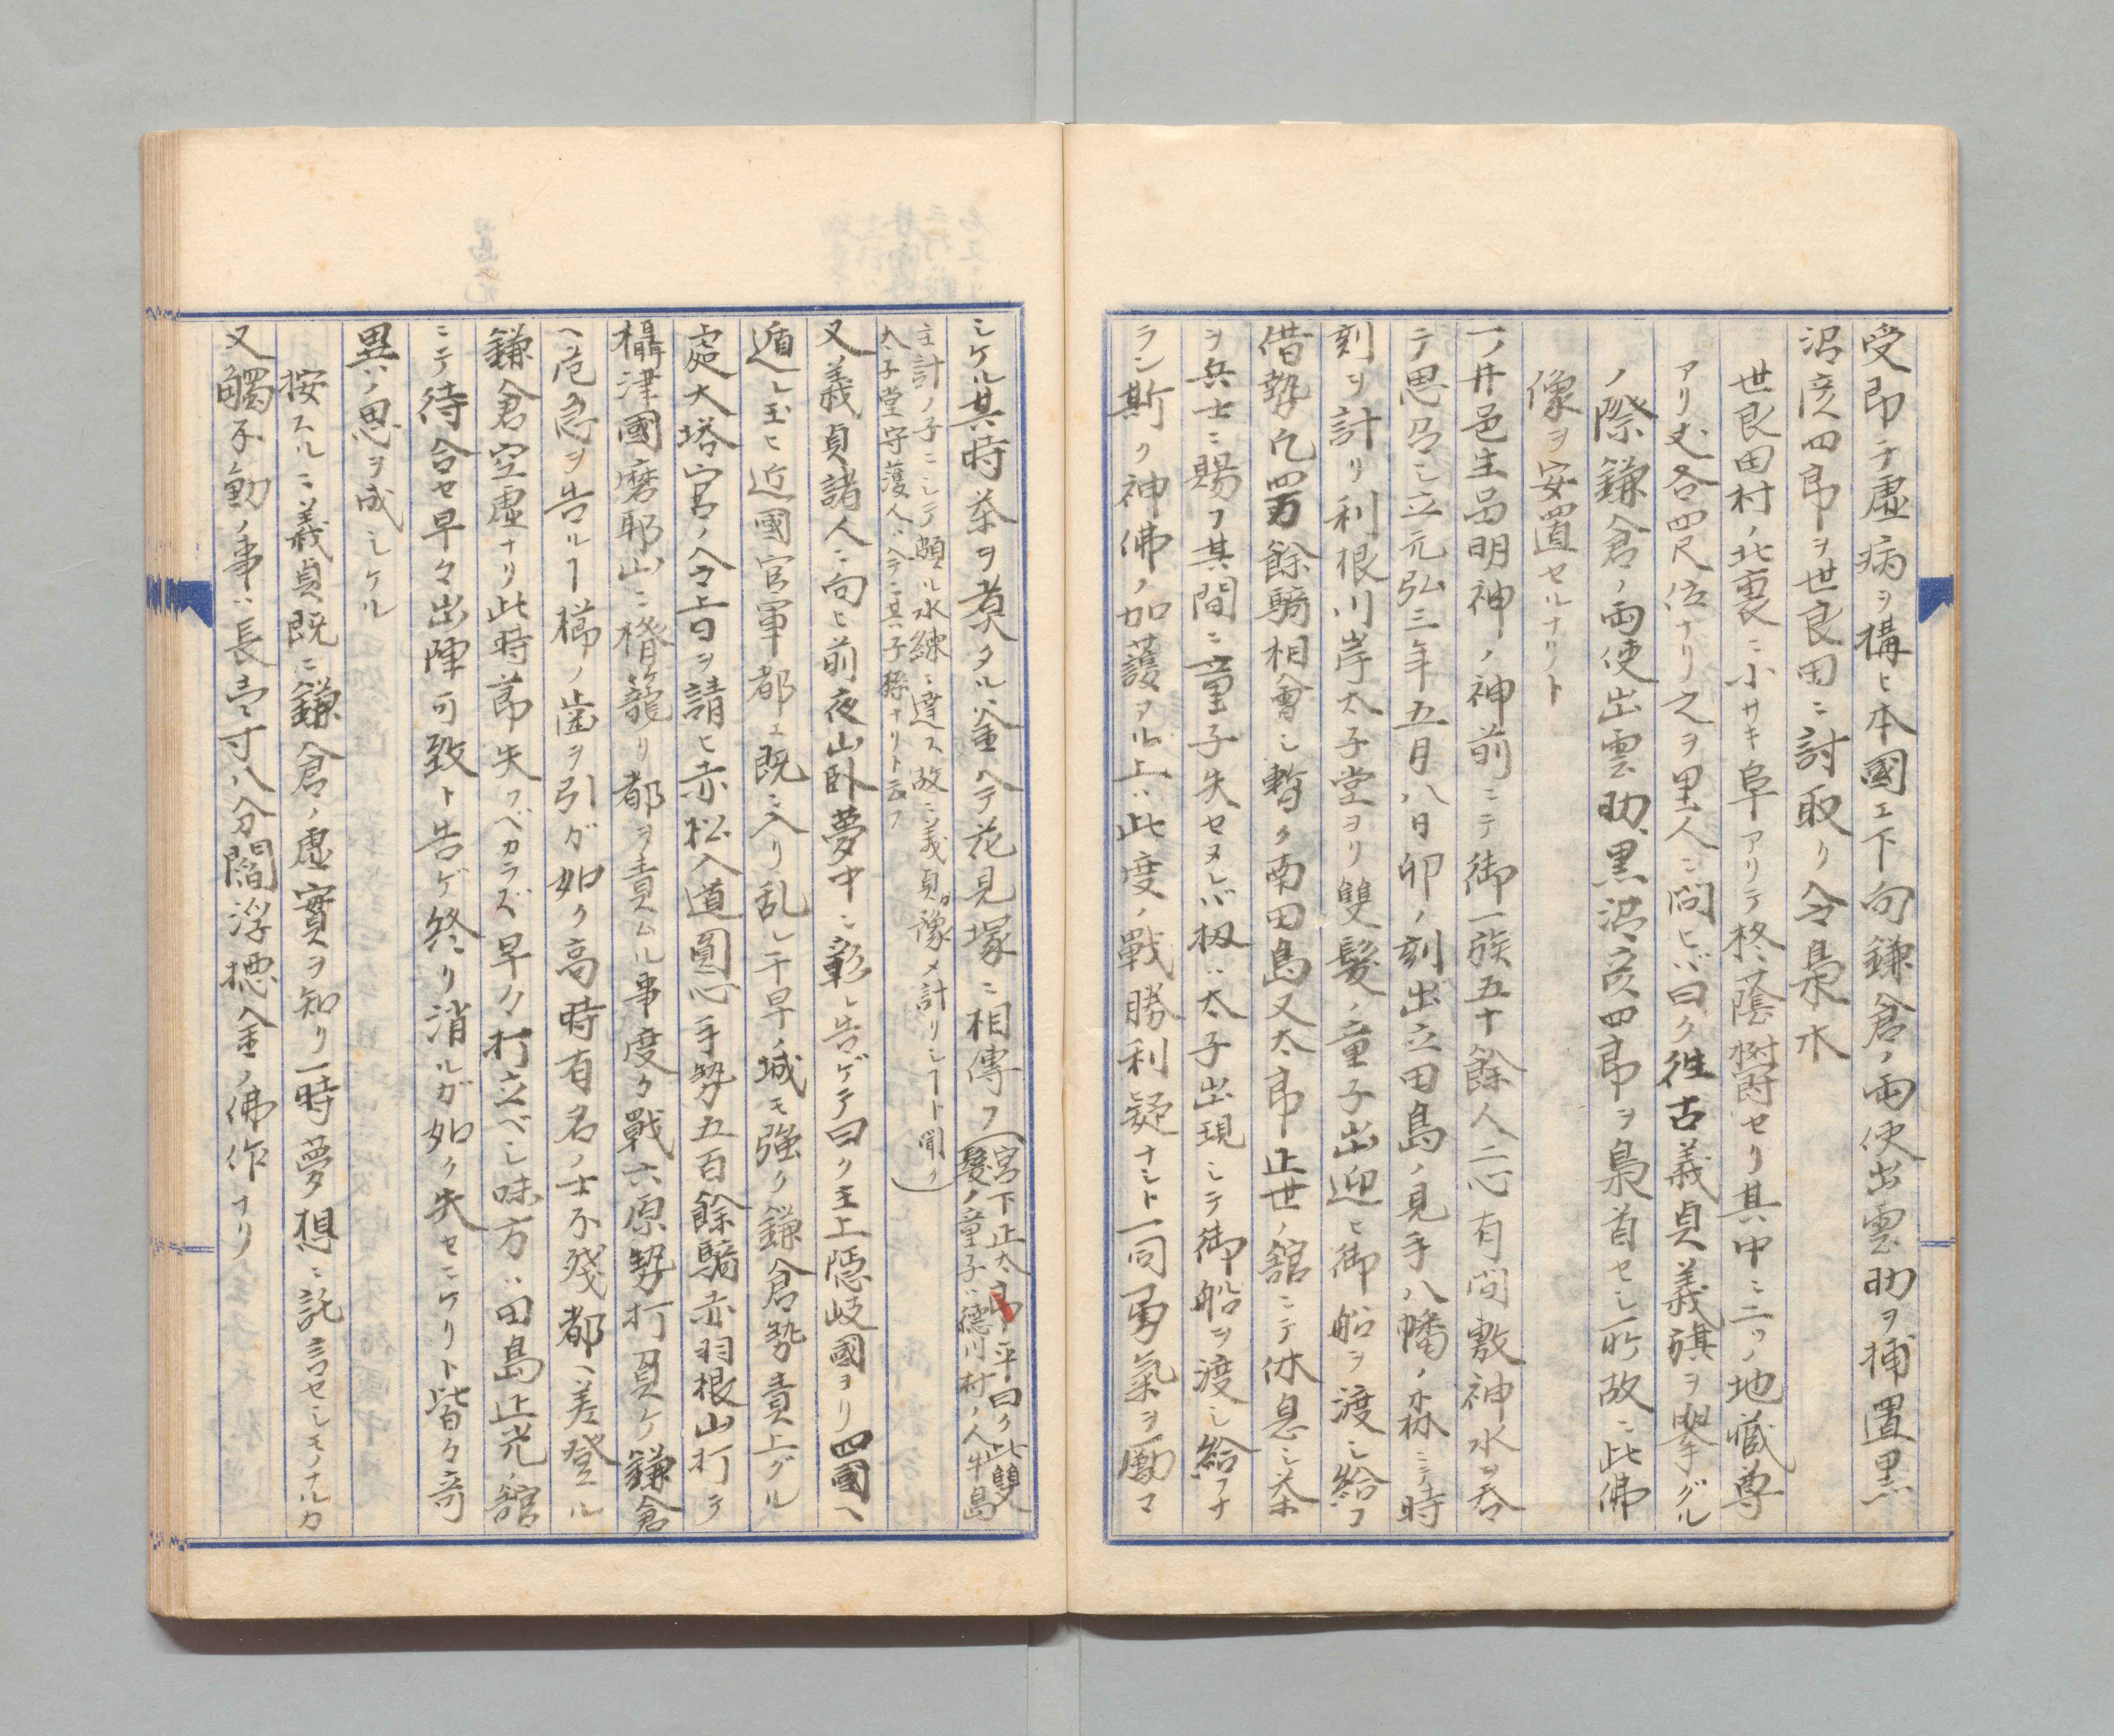 受即テ虚病ヲ構ヒ本國エ下向鎌倉ノ両使出雲助ヲ捕置黒
沼彦四郎ヲ世良田ニ討取リ令梟木
世良田村ノ北裏ニ小サキ阜アリテ柊蔭樹欝セリ其中ニ二ツノ地藏尊
アリ丈各四尺位ナリ之ヲ里人ニ問ヒバ曰ク徃古義貞義旗ヲ擧グル
ノ際鎌倉ノ両使出雲助、黒沼彦四郎ヲ梟首セシ所故ニ此佛
像ヲ安置セルナリト
一ノ井邑生品明神ノ神前ニテ御一族五十餘人二心有間敷神水ヲ呑
テ思召シ立元弘三年五月八日卯ノ刻出立田島ノ見手八幡ノ森ニテ時
刻ヲ計リ利根川岸太子堂ヨリ雙髮ノ童子出迎ヒ御船ヲ渡シ給フ
借勢凢四万餘騎相會シ暫ク南田島又太郎正世ノ舘ニテ休息シ茶
ヲ兵士ニ賜フ其間ニ童子失セヌレバ扨ハ太子出現シテ御船ヲ渡シ給フナ
ラン斯ク神佛ノ加護アル上ハ此度ノ戰勝利疑ナシト一同勇氣ヲ勵マ
シケル其時茶ヲ煑タル釜ヘテ花見塚ニ相傳フ(宮下正太郎平曰ク此雙
髮ノ童子ハ德川村ノ人牛島
主計ノ子ニシテ頗ル水練ニ達ス故ニ義貞ガ豫メ計リシヿト聞ク)
太子堂守護人ハヘテ其子孫ナリト云フ
又義貞諸人ニ向ヒ前夜山卧夢中ニ彰レ告ゲテ曰ク主上隠岐國ヨリ四國ヘ
遁レ玉ヒ近國官軍都エ既ニ入リ乱レ千早ノ城モ強ク鎌倉勢責上グル
處大塔宮ノ令上日ヲ請ヒ赤松入道圓心手勢五百餘騎赤羽根山打テ
攝津國磨耶山ニ楯籠リ都ヲ責ムル事度々戰六原勢打負ケ鎌倉
ヘ危急ヲ告ルヿ櫛ノ歯ヲ引ガ如ク高時有名ノ士不殘都ヘ差登ル
鎌倉空虚ナリ此時節失フベカラズ早々打立ベシ味方ハ田島正光ノ舘
ニテ待合セ早々出陣可致ト告ゲ終リ消ルガ如ク失セニケリト皆々奇
異ノ思ヲ成シケル
按スルニ義貞既ニ鎌倉ノ虚實ヲ知リ一時夢想ニ託言セシモノナルカ
又觸不動ノ事ハ長壱寸八分閻浮檀金ノ佛作ナリ